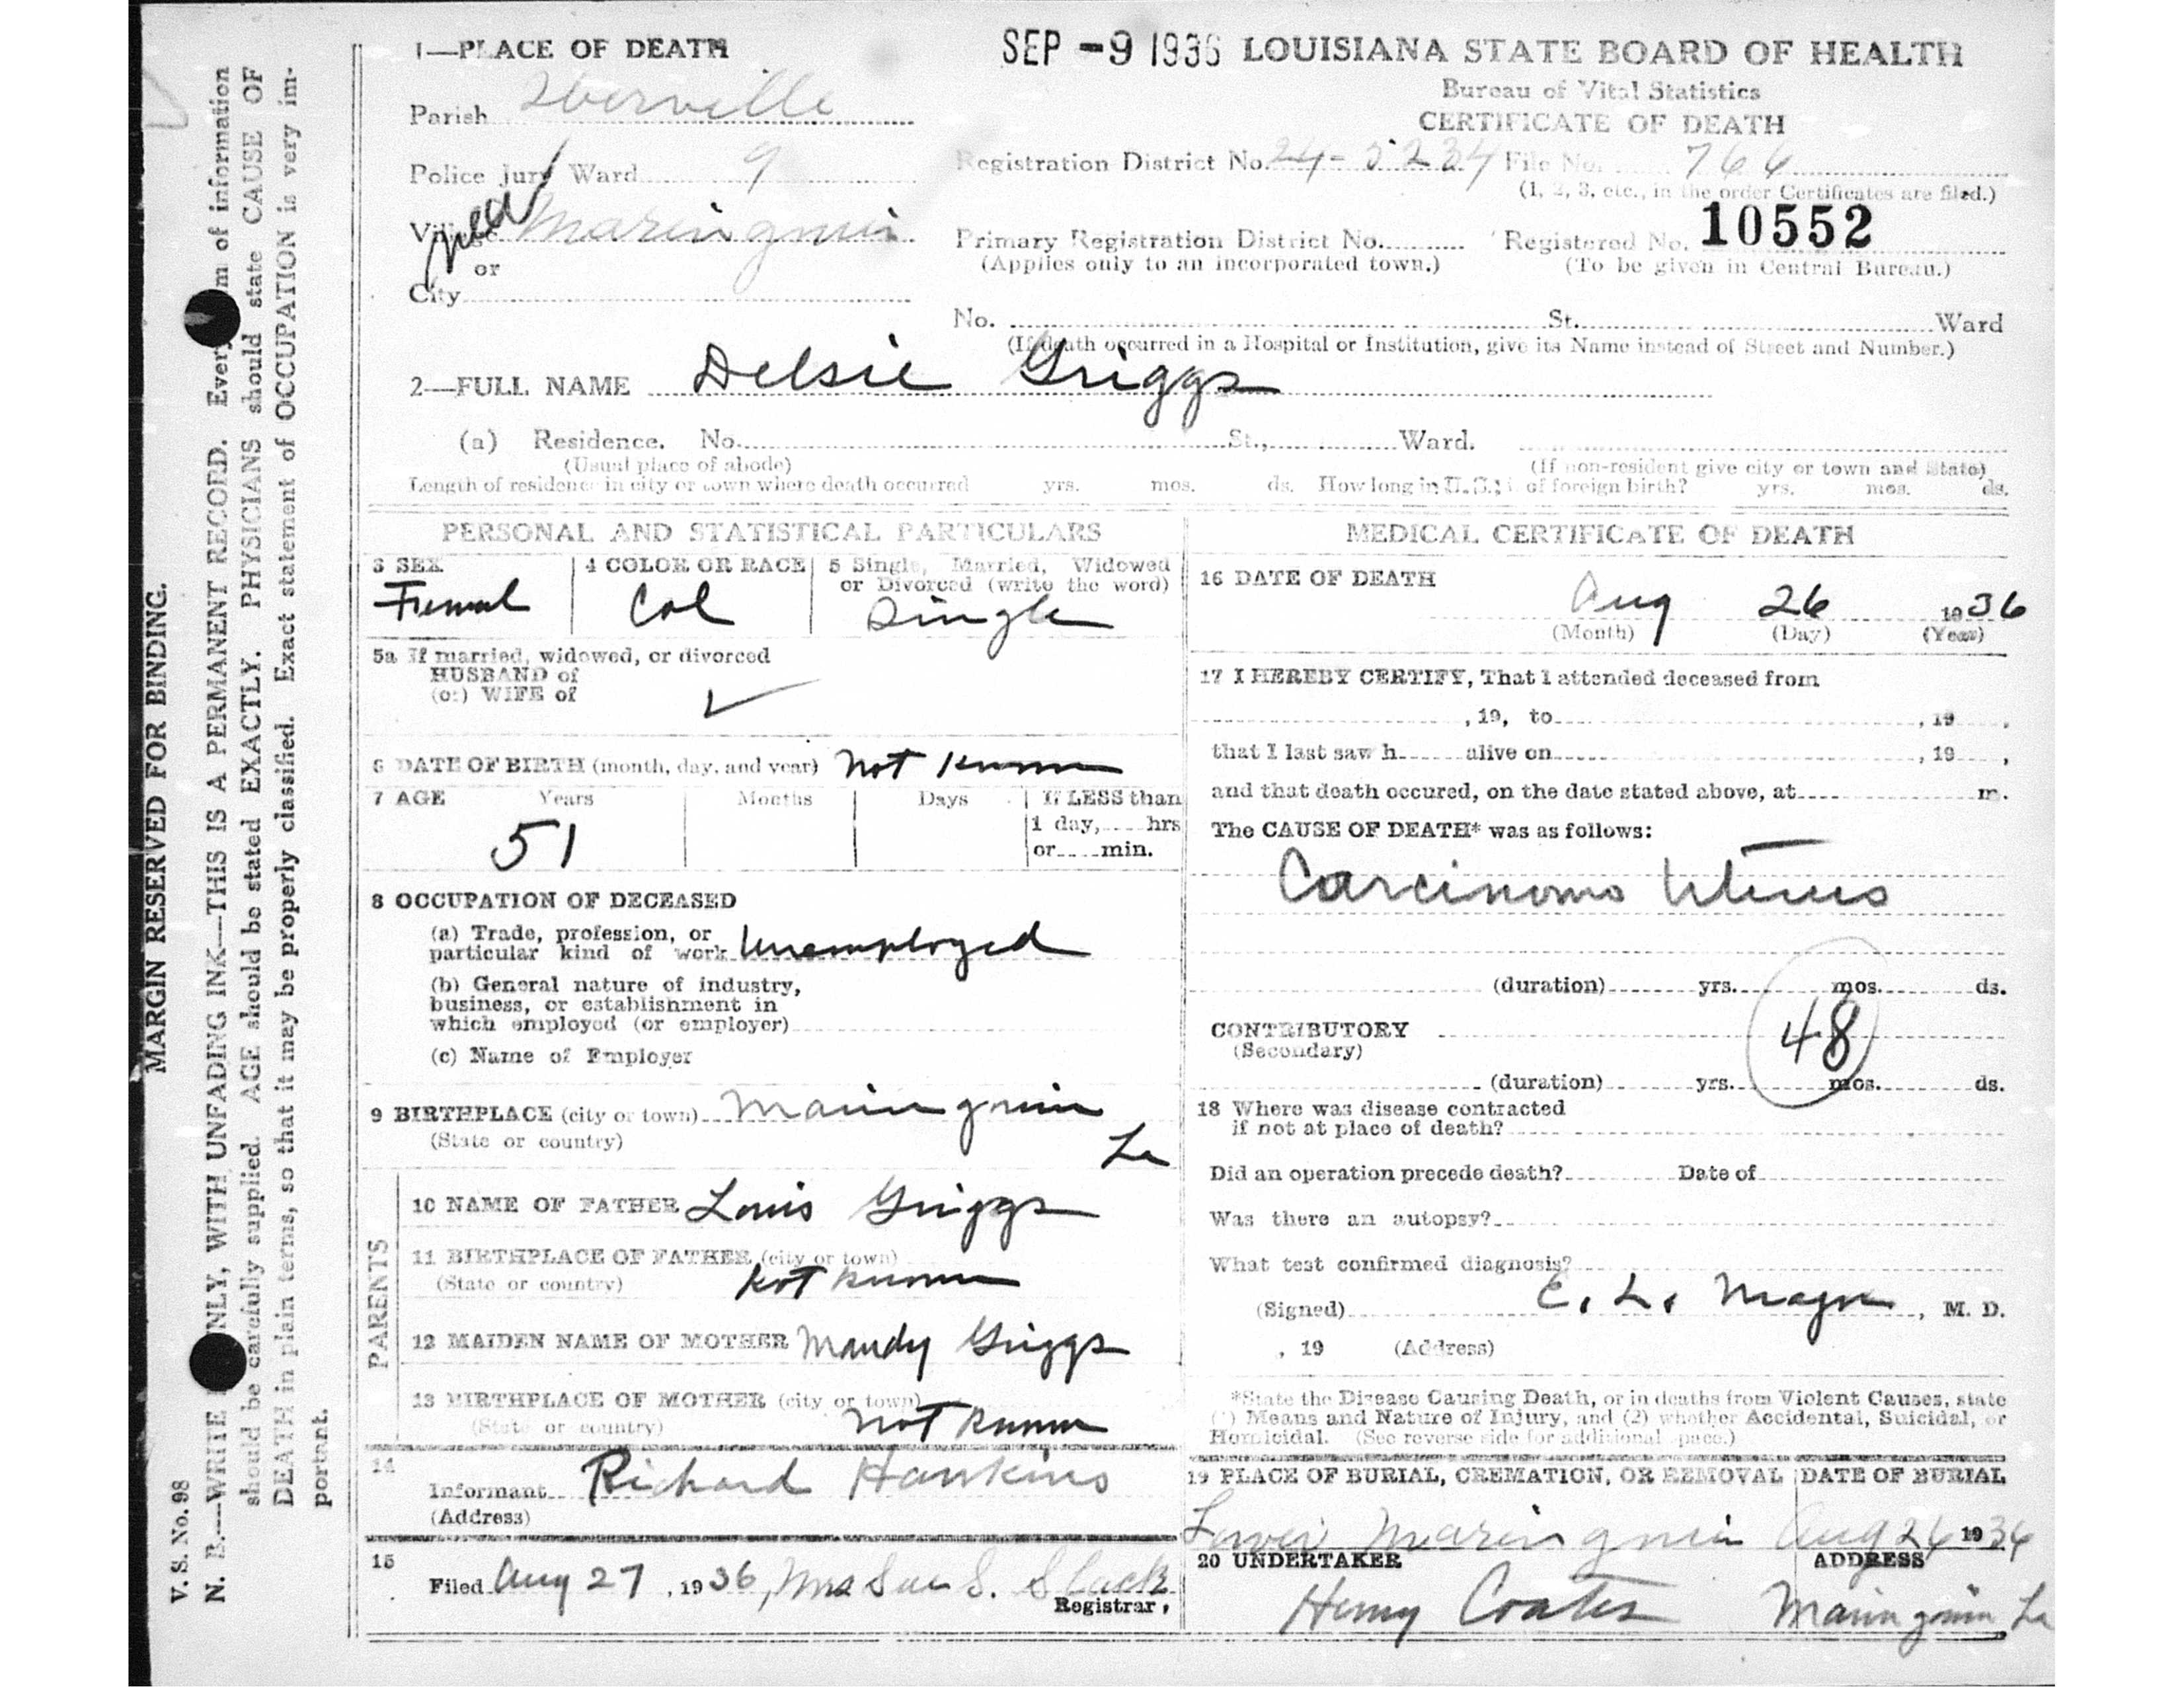 1—PLACE OF DEATH
SEP -9 1936 LOUISIANA STATE BOARD OF HEALTH
Bureau of Vital Statistics
CERTIFICATE OF DEATH
Parish Iberville
Police jury Ward 9
Registration District No. 24-5234 File No. 766
(1, 2, 3, etc., in the order Certificates are filed.)
near
Village Maringouin
Primary Registration District No.
(Applies only to an incorporated town.)
Registered No. 10552
(To be given in Central Bureau.)
or
City
No. St. Ward
(If death occurred in a Hospital or Institution, give its Name instead of Street and Number.)
2—FULL NAME Delsie Griggs
(a) Residence. No. St., Ward.
(Usual place of abode)
(If non-resident give city or town and State)
Length of residence in city or town where death occurred yrs. mos. ds. How long in U. S., of foreign birth? yrs. mos. ds.
PERSONAL AND STATISTICAL PARTICULARS
3 SEX
Femal
4 COLOR OR RACE
Col
5 Single, Married, Widowed
or Divorced (write the word)
Single
5a If married, widowed, or divorced
HUSBAND of
(or) WIFE of
6 DATE OF BIRTH (month, day, and year) not known
7 AGE Years Months Days If LESS than
1 day, hrs
or min.
51
8 OCCUPATION OF DECEASED
(a) Trade, profession, or
particular kind of work Unemployed
(b) General nature of industry,
business, or establishment in
which employed (or employer)
(c) Name of Employer
9 BIRTHPLACE (city or town) Maringouin
(State or country) La
PARENTS
10 NAME OF FATHER Louis Griggs
11 BIRTHPLACE OF FATHER (city or town)
(State or country) not known
12 MAIDEN NAME OF MOTHER Mandy Griggs
13 BIRTHPLACE OF MOTHER (city or town)
(State or country) not known
14
Informant Richard Hawkins
(Address)
15
Filed Aug 27, 1936, Mrs Sue S. Slack
Registrar,
MEDICAL CERTIFICATE OF DEATH
16 DATE OF DEATH
Aug 26 1936
(Month) (Day) (Year)
17 I HEREBY CERTIFY, That I attended deceased from
, 19, to , 19 ,
that I last saw h alive on , 19 ,
and that death occured, on the date stated above, at m.
The CAUSE OF DEATH* was as follows:
Carcinoma Uterus
(duration) yrs. mos. ds.
CONTRIBUTORY 48
(Secondary)
(duration) yrs. mos. ds.
18 Where was disease contracted
if not at place of death?
Did an operation precede death? Date of
Was there an autopsy?
What test confirmed diagnosis?
(Signed) E. L. , M. D.
, 19 (Address)
*State the Disease Causing Death, or in deaths from Violent Causes, state
(1) Means and Nature of Injury, and (2) whether Accidental, Suicidal, or
Homicidal. (See reverse side for additional space.)
19 PLACE OF BURIAL, CREMATION, OR REMOVAL DATE OF BURIAL
Maringouin Aug 26 1936
20 UNDERTAKER ADDRESS
Henry Coates Maringouin La
MARGIN RESERVED FOR BINDING.
V. S. No. 98
N. B.—WRITE ONLY, WITH UNFADING INK—THIS IS A PERMANENT RECORD. Every item of information
should be carefully supplied. AGE should be stated EXACTLY. PHYSICIANS should state CAUSE OF
DEATH in plain terms, so that it may be properly classified. Exact statement of OCCUPATION is very im-
portant.